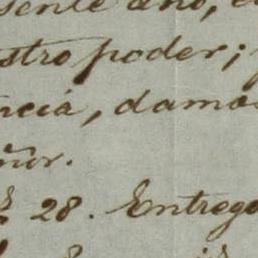 sente año, e
stro poder; y
ncia, damos
ñor.
28. Entrego